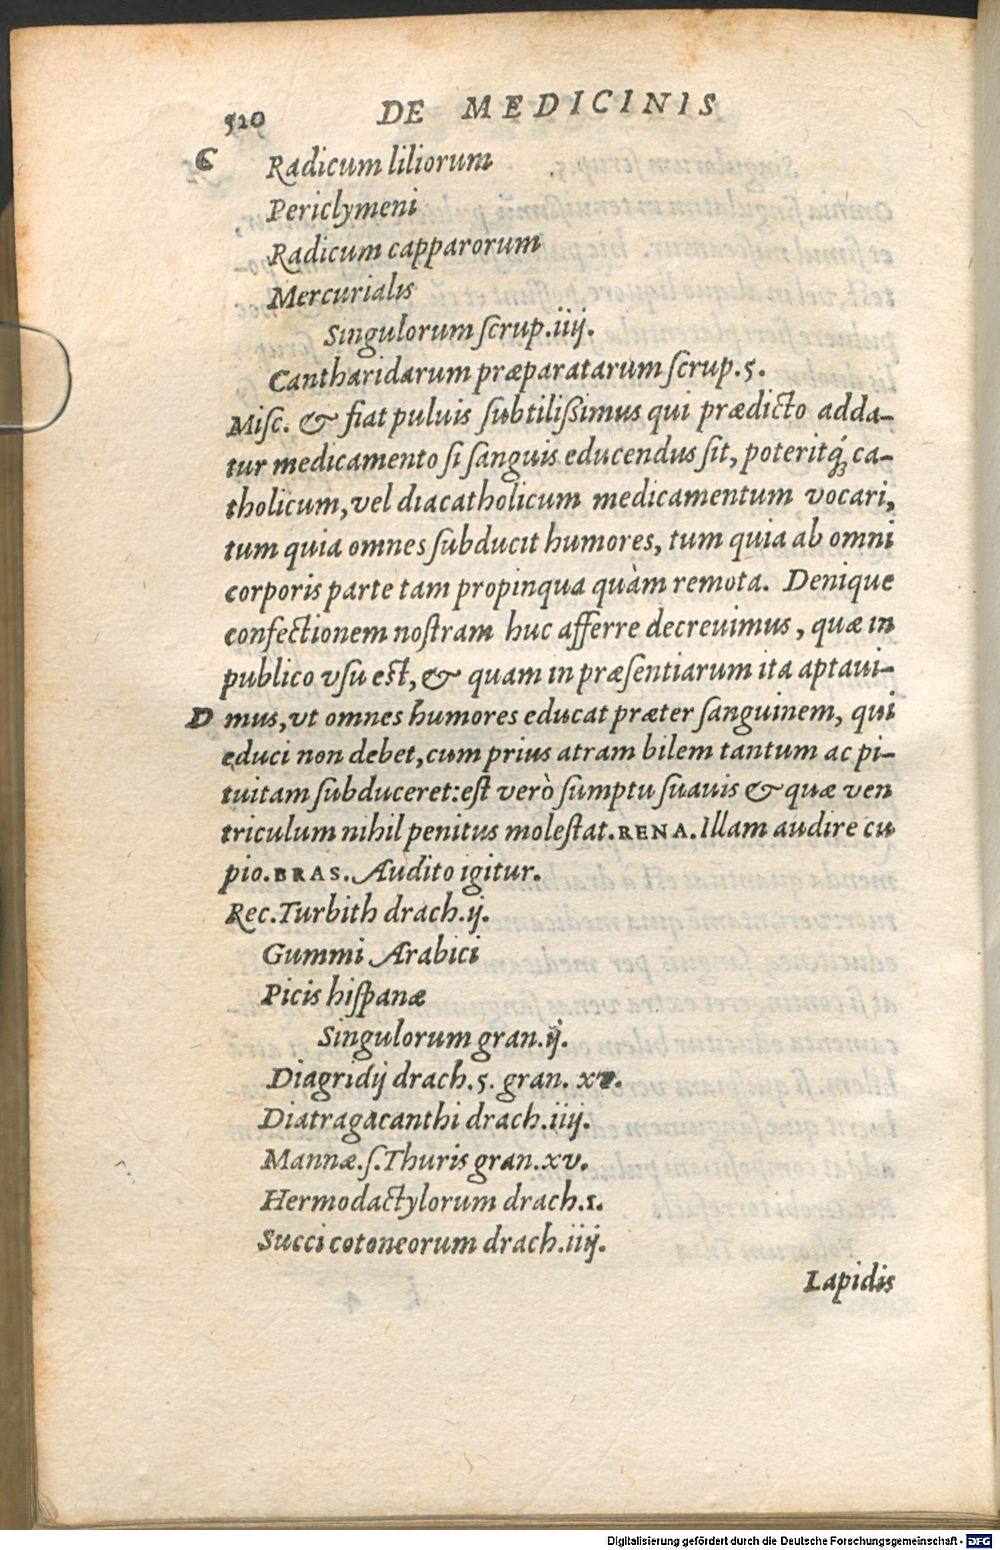 520 DE MEDICINIS
C Radicum liliorum
Periclymeni
Radicum capparorum
Mercurialis
Singulorum ſcrup.iiij.
Cantharidarum præparatarum ſcrup.5.
Miſc. & fiat puluis ſubtilißimus qui prædicto adda-
tur medicamento ſi ſanguis educendus ſit, poteritq́; ca-
tholicum, vel diacatholicum medicamentum vocari,
tum quia omnes ſubducit humores, tum quia ab omni
corporis parte tam propinqua quàm remota. Denique
confectionem noſtram huc afferre decreuimus, quæ in
publico vſu eſt, & quam in præſentiarum ita aptaui-
D mus, vt omnes humores educat præter ſanguinem, qui
educi non debet, cum prius atram bilem tantum ac pi-
tuitam ſubduceret: eſt verò ſumptu ſuauis & quæ ven
triculum nihil penitus moleſtat. RENA. Illam audire cu
pio. BRAS. Audito igitur.
Rec. Turbith drach.ij.
Gummi Arabici
Picis hiſpanæ
Singulorum gran.ij.
Diagridij drach.5. gran. xv.
Diatragacanthi drach.iiij.
Mannæ.ſ. Thuris gran.xv.
Hermodactylorum drach.1.
Succi cotoneorum drach.iiij.
Lapidis
Digitalisierung gefördert durch die Deutsche Forschungsgemeinschaft - DFG